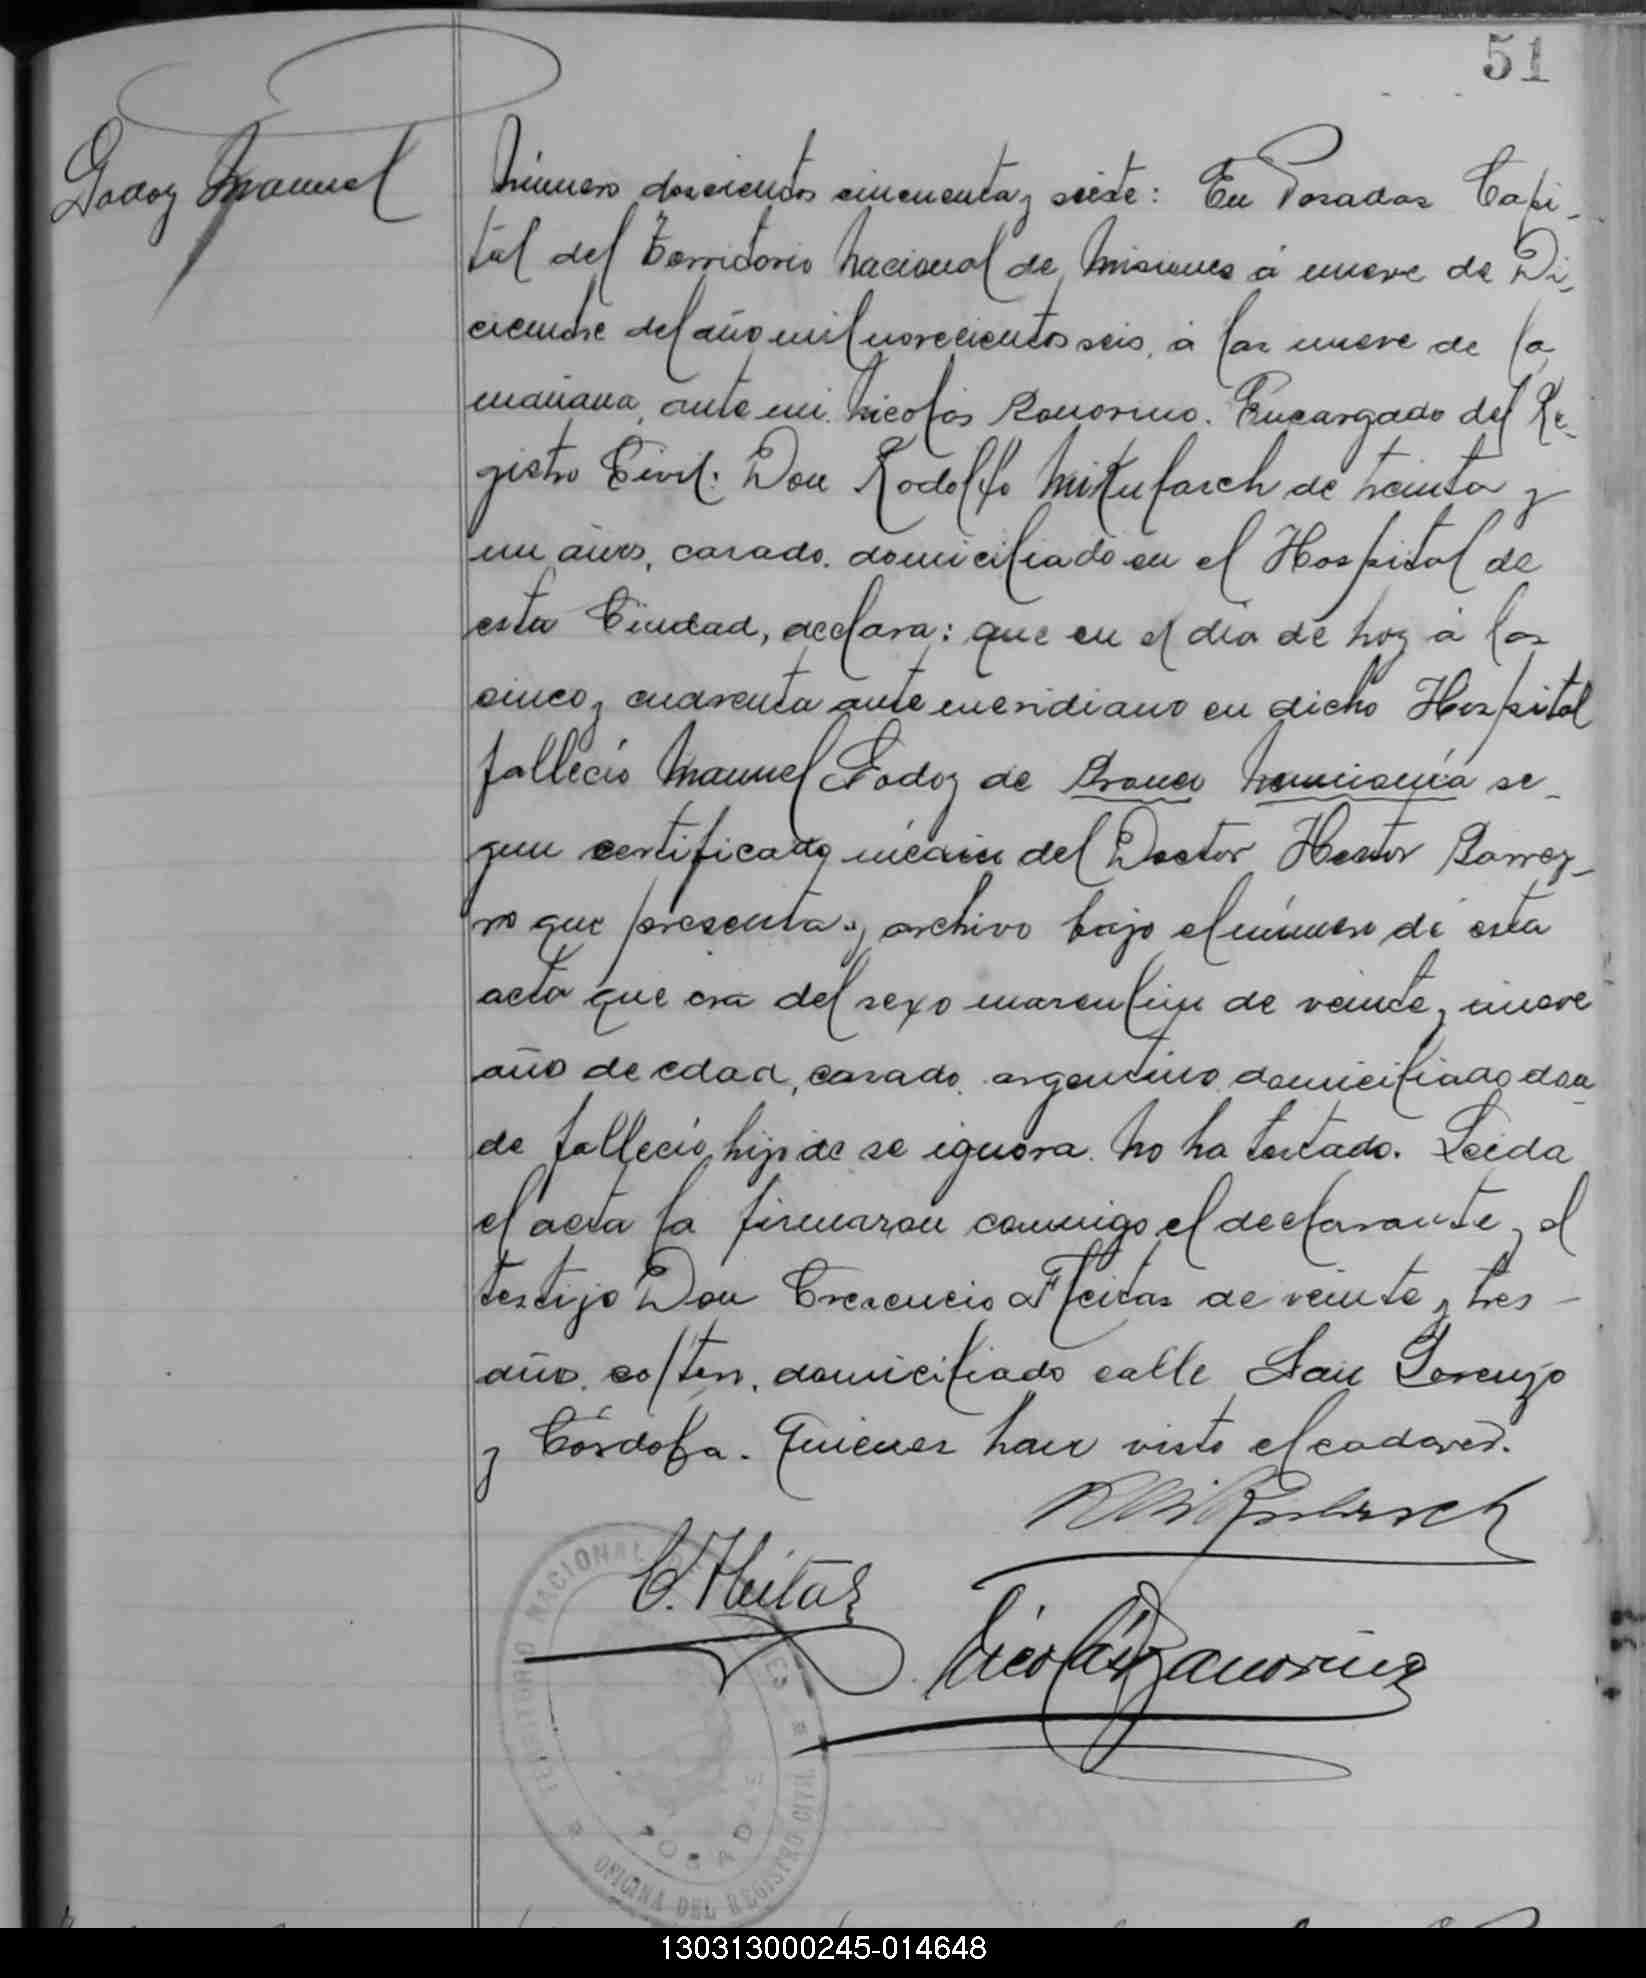 51
Godoy Manuel
Número doscientos cincuenta y siete: En Posadas Capi-
tal del Territorio Nacional de Misiones á nueve de Di-
ciembre del año mil novecientos seis, á las nueve de la
mañana, ante mi Nicolás Bonorino. Encargado del Re-
gistro Civil: Don Rodolfo Mikulasch de treinta y
un años, casado, domiciliado en el Hospital de
esta Ciudad, declara: que en el dia de hoy á las
cinco y cuarenta ante meridiano en dicho Hospital
falleció Manuel Godoy de Bronco Neumonía se-
gun certificado médico del Doctor Hector Barrey-
ro que presenta y archivo bajo el número de esta
acta que era del sexo masculino de veinte y nueve
año de edad, casado, argentino, domiciliado don-
de falleció, hijo de se ignora. No ha testado. Leida
el acta la firmaron conmigo el declarante y el
testigo Don Crescencio Fleitas de veinte y tres -
año, soltero, domiciliado calle San Lorenzo
y Córdoba. Quienes han visto el cadáver.
C. Fleitas
Nicolás Bonorino
TERRITORIO NACIONAL DE MISIONES
POSADAS
OFICINA DEL REGISTRO CIVIL
130313000245-014648